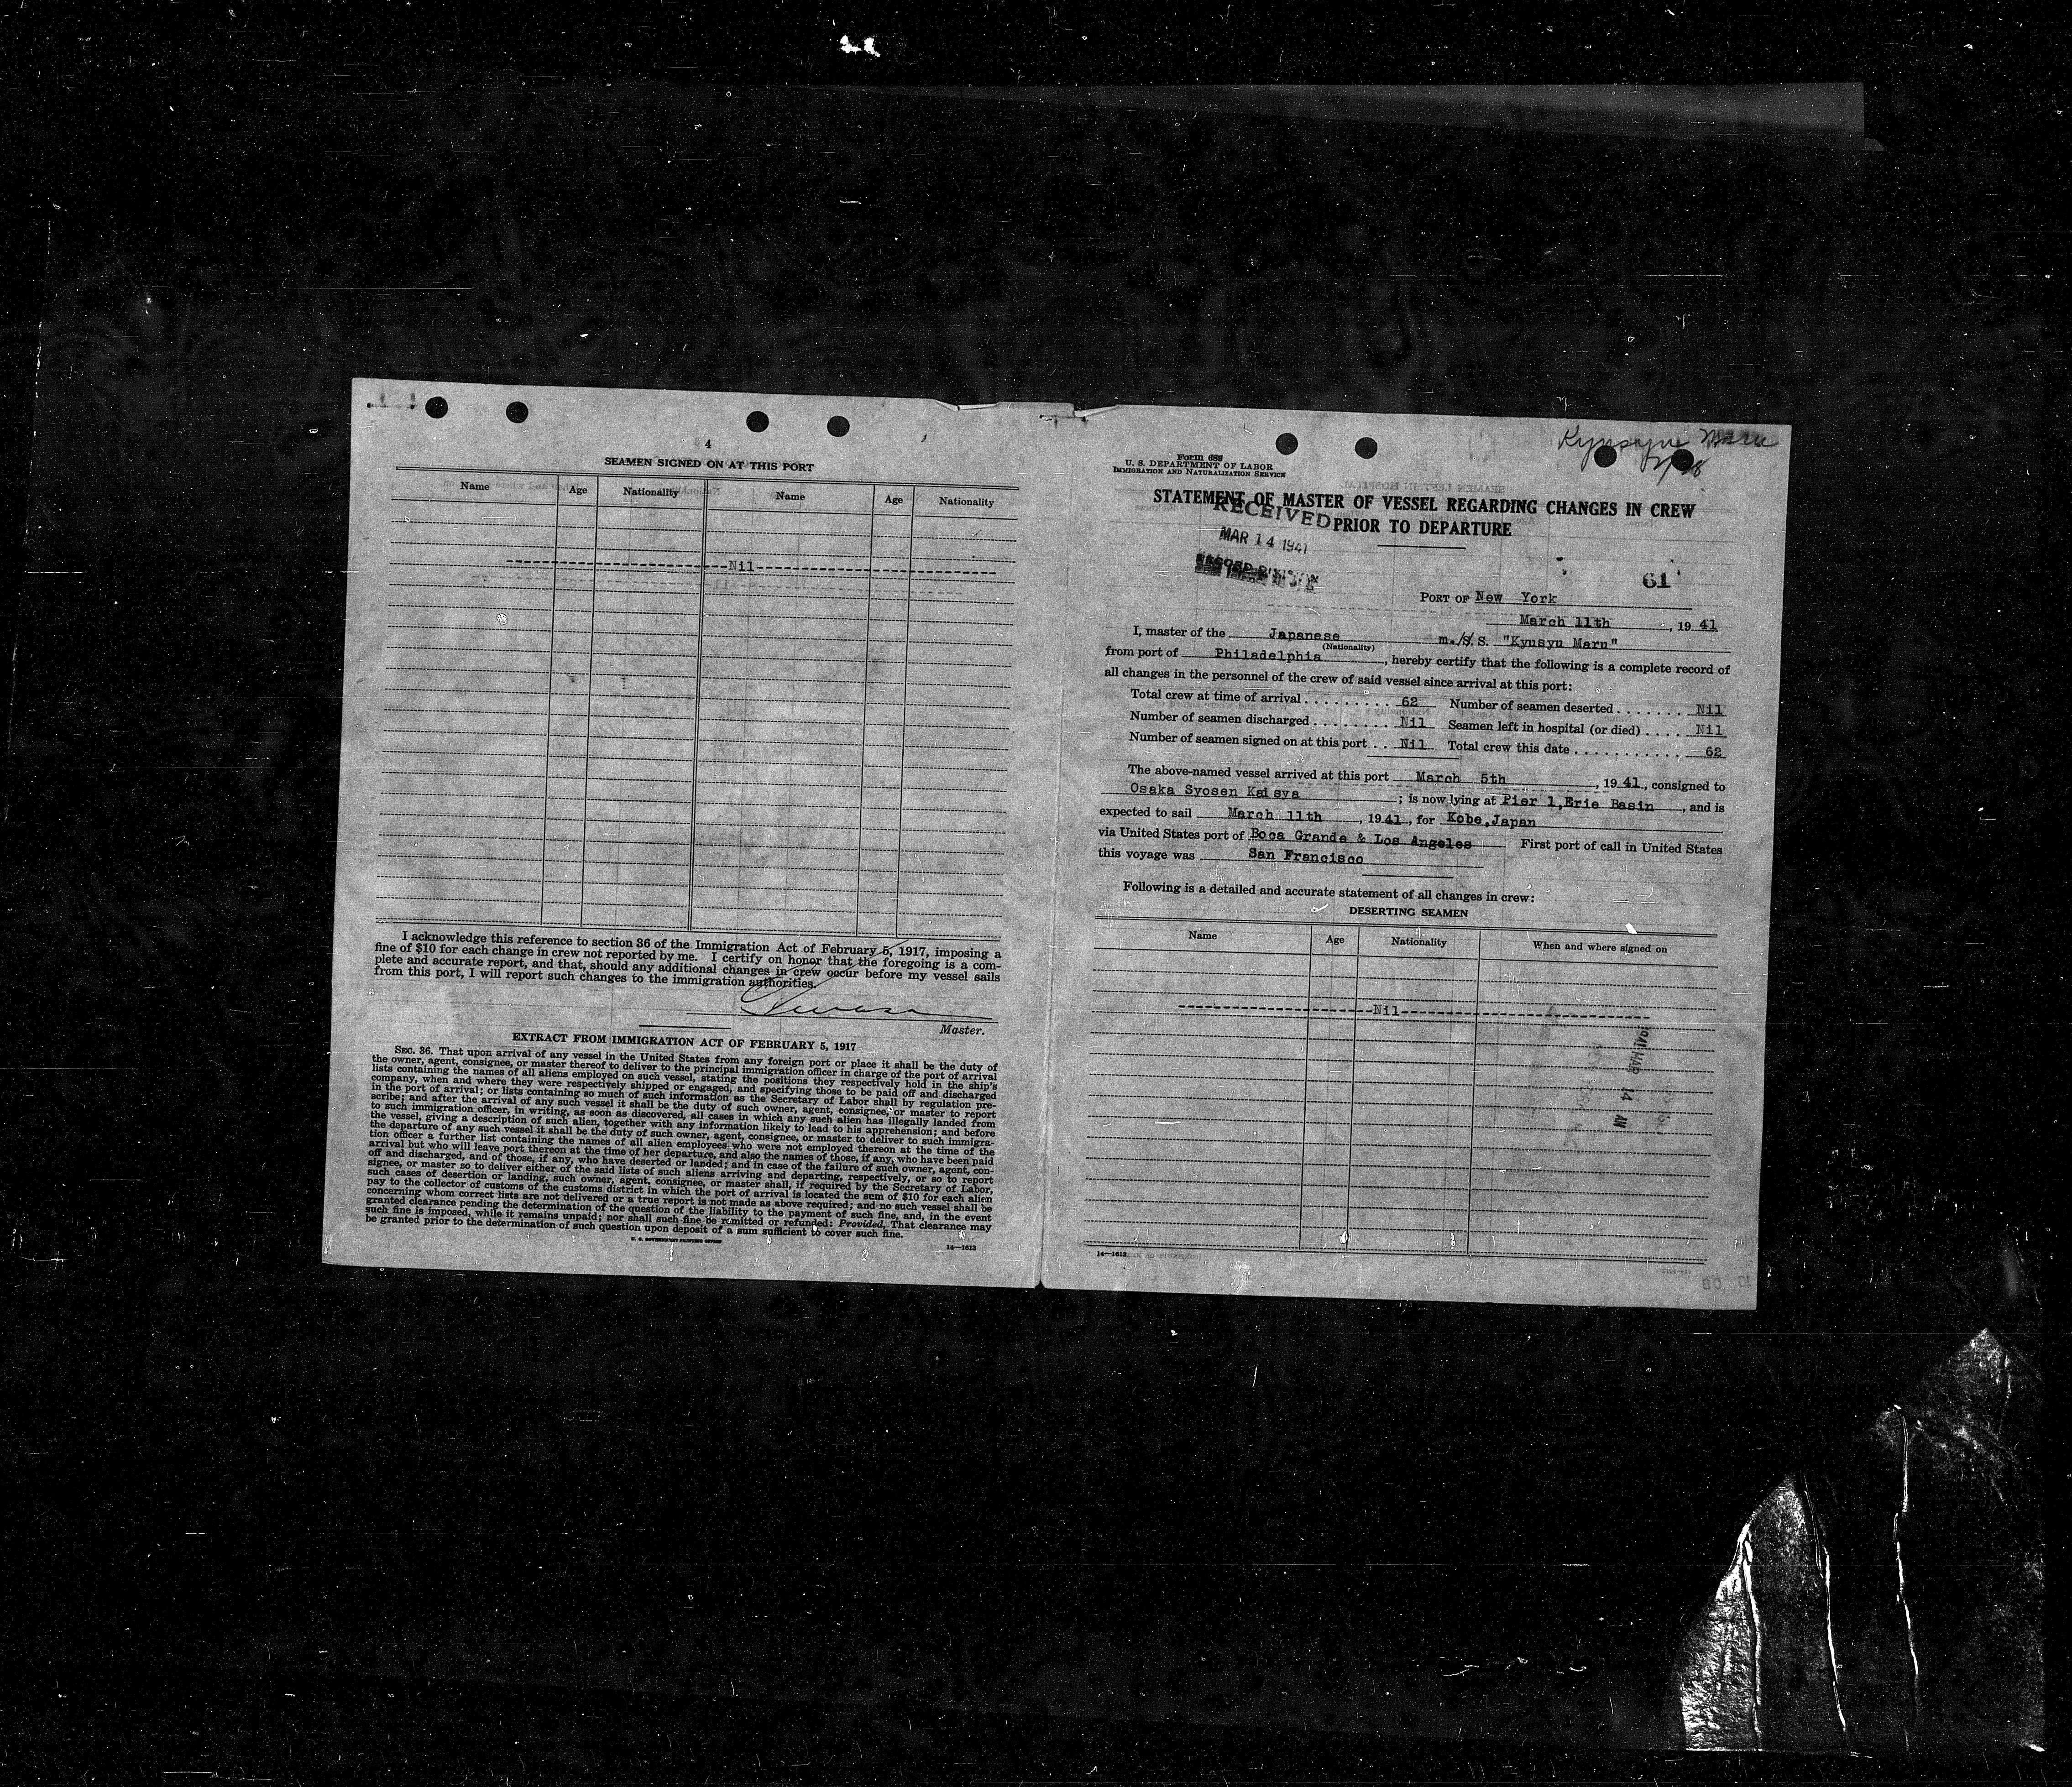 4
SEAMEN SIGNED ON AT THIS PORT
Name Age Nationality Name Age Nationality
Nil
I acknowledge this reference to section 36 of the Immigration Act of February 5, 1917, imposing a
fine of $10 for each change in crew not reported by me. I certify on honor that the foregoing is a com-
plete and accurate report, and that, should any additional changes in crew occur before my vessel sails
from this port, I will report such changes to the immigration authorities.
Master.
EXTRACT FROM IMMIGRATION ACT OF FEBRUARY 5, 1917
SEC. 36. That upon arrival of any vessel in the United States from any foreign port or place it shall be the duty of
the owner, agent, consignee, or master thereof to deliver to the principal immigration officer in charge of the port of arrival
lists containing the names of all aliens employed on such vessel, stating the positions they respectively hold in the ship's
company, when and where they were respectively shipped or engaged, and specifying those to be paid off and discharged
in the port of arrival; or lists containing so much of such information as the Secretary of Labor shall by regulation pre-
scribe; and after the arrival of any such vessel it shall be the duty of such owner, agent, consignee, or master to report
to such immigration officer, in writing, as soon as discovered, all cases in which any such alien has illegally landed from
the vessel, giving a description of such alien, together with any information likely to lead to his apprehension; and before
the departure of any such vessel it shall be the duty of such owner, agent, consignee, or master to deliver to such immigra-
tion officer a further list containing the names of all alien employees who were not employed thereon at the time of the
arrival but who will leave port thereon at the time of her departure, and also the names of those, if any, who have been paid
off and discharged, and of those, if any, who have deserted or landed; and in case of the failure of such owner, agent, con-
signee, or master so to deliver either of the said lists of such aliens arriving and departing, respectively, or so to report
such cases of desertion or landing, such owner, agent, consignee, or master shall, if required by the Secretary of Labor,
pay to the collector of customs of the customs district in which the port of arrival is located the sum of $10 for each alien
concerning whom correct lists are not delivered or a true report is not made as above required; and no such vessel shall be
granted clearance pending the determination of the question of the liability to the payment of such fine, and, in the event
such fine is imposed, while it remains unpaid; nor shall such fine be remitted or refunded: Provided, That clearance may
be granted prior to the determination of such question upon deposit of a sum sufficient to cover such fine.
U. S. GOVERNMENT PRINTING OFFICE
14—1613
Maru
Form 689
U. S. DEPARTMENT OF LABOR
IMMIGRATION AND NATURALIZATION SERVICE
STATEMENT OF MASTER OF VESSEL REGARDING CHANGES IN CREW
PRIOR TO DEPARTURE
RECEIVED
MAR 14 1941
61
PORT OF New York
March 11th, 19 41
I, master of the Japanese m./S. S. "Kyusyu Maru"
(Nationality)
from port of Philadelphia, hereby certify that the following is a complete record of
all changes in the personnel of the crew of said vessel since arrival at this port:
Total crew at time of arrival . . . . . . . . . 62 Number of seamen deserted . . . . . . . Nil
Number of seamen discharged . . . . . . . . Nil Seamen left in hospital (or died) . . . . Nil
Number of seamen signed on at this port . . Nil Total crew this date . . . . . . . . . . . 62
The above-named vessel arrived at this port March 5th, 19 41, consigned to
Osaka Syosen Kaisya; is now lying at Pier 1,Erie Basin, and is
expected to sail March 11th, 19 41, for Kobe,Japan
via United States port of Boca Grande & Los Angeles First port of call in United States
this voyage was San Francisco
Following is a detailed and accurate statement of all changes in crew:
DESERTING SEAMEN
Name Age Nationality When and where signed on
Nil
14—1613